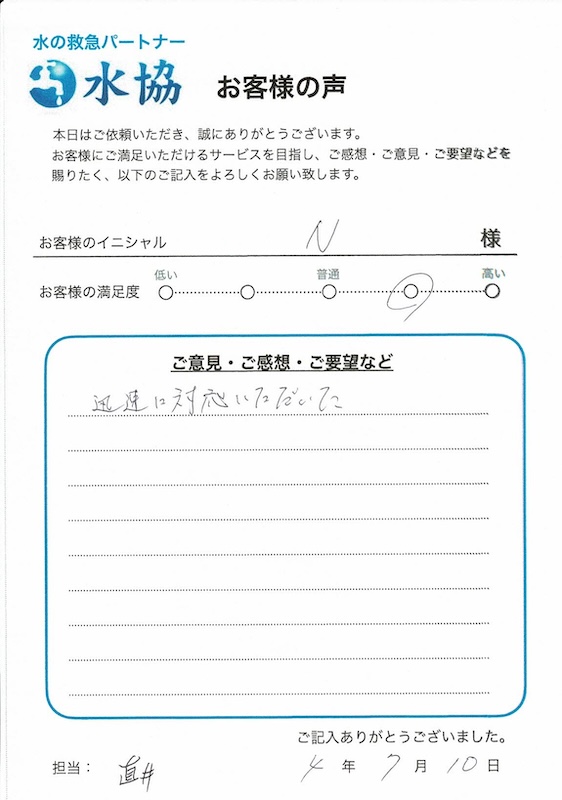 水の救急パートナー
水協 お客様の声
本日はご依頼いただき、誠にありがとうございます。
お客様にご満足いただけるサービスを目指し、ご感想・ご意見・ご要望などを
賜りたく、以下のご記入をよろしくお願い致します。
お客様のイニシャル N 様
低い 普通 高い
お客様の満足度
ご意見・ご感想・ご要望など
迅速に対応いただいた
ご記入ありがとうございました。
担当： 直井 4 年 7 月 10 日